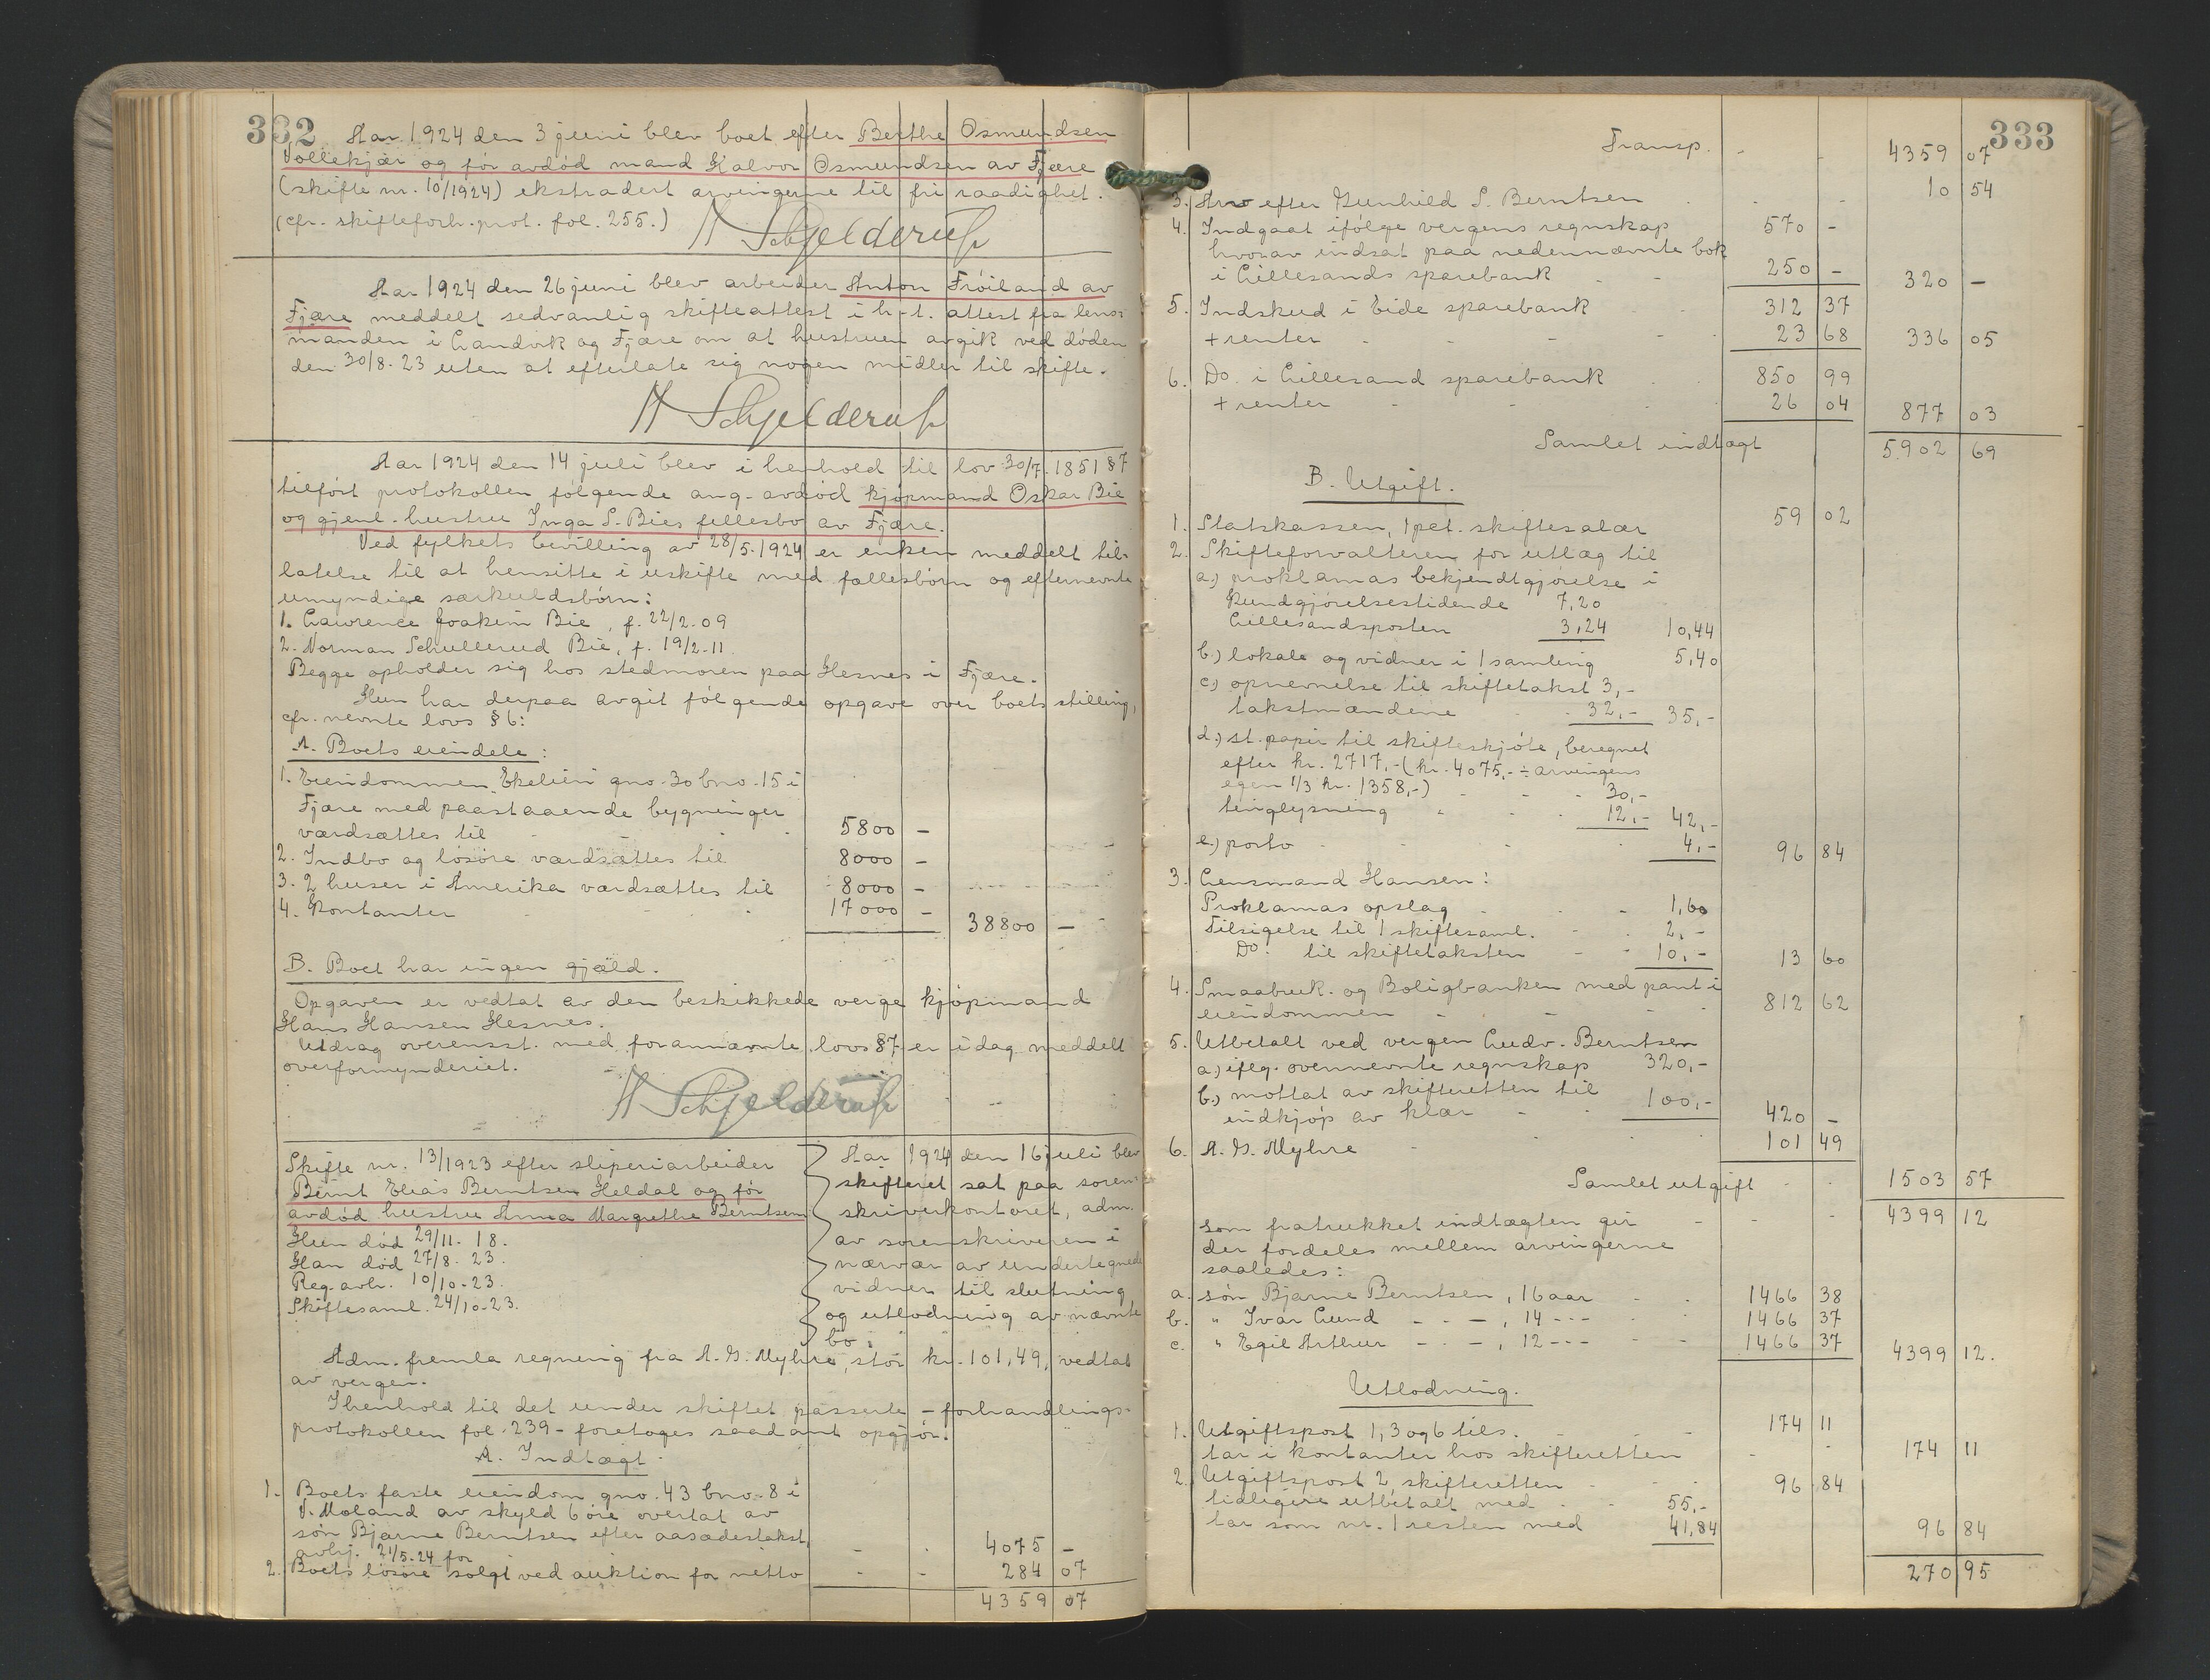 332
Aar 1924 den 3 juni blev boet efter Berthe Osmundsen
Vollekjær og før avdød mand Halvor Osmundsen av Fjære
(skifte nr. 10/1924) ekstradert arvingerne til fri raadighet.
(cfr. skifteforh.prot. fol. 255.)
H Schjelderup
Aar 1924 den 26 juni blev arbeider Anton Frøiland av
Fjære meddelt sedvanlig skifteattest i h.t. attest fra lens-
manden i Landvik og Fjære om at hustruen avgik ved døden
den 30/8. 23 uten at efterlate sig nogen midler til skifte.
H Schjelderup
Aar 1924 den 14 juli blev i henhold til lov 30/7. 1851 §7
tilført protokollen følgende ang. avdød kjøpmand Oskar Bie
og gjenl. hustru Inga S. Bies fellesbo av Fjære.
Ved fylkets bevilling av 28/5. 1924 er enken meddelt til-
latelse til at hensitte i uskifte med fællesbørn og efternevnte
umyndige særkuldsbørn:
1. Lawrence Joakim Bie, f. 22/2.09
2. Norman Schullerud Bie, f. 19/2.11.
Begge opholder sig hos stedmoren paa Hesnes i Fjære.
Hun har derpaa avgit følgende opgave over boets stilling,
cfr. nevnte lovs § 6:
A. Boets eiendele:
1. Eiendommen Ekelien gno. 30 bno. 15 i
Fjære med paastaaende bygninger
værdsættes til 5800 -
2. Indbo og løsøre værdsættes til 8000 -
3. 2 huser i Amerika værdsættes til 8000 -
4. Kontanter 17000 - 38800 -
B. Boet har ingen gjæld.
Opgaven er vedtat av den beskikkede verge kjøpmand
Hans Hansen Hesnes.
Utdrag overensst. med forannævnte lovs §7 er idag meddelt
overformynderiet.
H Schjelderup
Skifte nr. 13/1923 efter sliperiarbeider
Bernt Elias Berntsen Heldal og før
avdød hustru Anna Margrethe Berntsen
Hun død 29/11. 18.
Han død 27/8. 23.
Reg. avh. 10/10. 23.
Skiftesaml. 24/10. 23.
Aar 1924 den 16 juli blev
skifteret sat paa soren-
skriverkontoret, adm.
av sorenskriveren i
nærvær av undertegnede
vidner til slutning
og utlodning av nævnte
bo:
Adm. fremla regning fra A. G. Myhre, stor kr. 101,49, vedtat
av vergen.
I henhold til det under skiftet passerte - forhandlings-
protokollen fol. 239 - foretoges saadant opgjør:
A. Indtægt.
1. Boets faste eiendom gno. 43 bno. 8 i
V. Moland av skyld 6 øre overtat av
søn Bjarne Berntsen efter aasædestakst,
avhj. 21/5. 24 for 4075 -
2. Boets løsøre solgt ved auktion for netto 284 07
4359 07
333
Transp. 4359 07
3. Arv efter Gunhild S. Berntsen 10 54
4. Indgaat ifølge vergens regnskap 570 -
hvorav indsat paa nedennævnte bok
i Lillesands sparebank 250 - 320 -
5. Indskud i Eide sparebank 312 37
+ renter 23 68 336 05
6. Do. i Lillesand sparebank 850 99
+ renter 26 04 877 03
Samlet indtægt 5902 69
B. Utgift.
1. Statskassen, 1 pct. skiftesalær 59 02
2. Skifteforvalteren for utlæg til
a.) proklamas bekjendtgjørelse i
Kundgjørelsestidende 7,20
Lillesandsposten 3,24 10,44
b.) lokale og vidner i 1 samling 5,40
c.) opnevnelse til skiftetakst 3,-
takstmændene 32,- 35,-
d.) st. papir til skifteskjøte, beregnet
efter kr. 2717,- (kr. 4075,- ÷ arvingens
egen 1/3 kr. 1358,-) 30,-
tinglysning 12,- 42,-
e.) porto 4,- 96 84
3. Lensmand Hansen:
Proklamas opslag 1,60
Tilsigelse til 1 skiftesaml. 2,-
Do. til skiftetaksten 10,- 13 60
4. Smaabruk- og Boligbanken med pant i
eiendommen 812 62
5. Utbetalt ved vergen Ludv. Berntsen
a.) iflg. ovennevnte regnskap 320,-
b.) mottat av skifteretten til
indkjøp av klær 100,- 420 -
6. A. G. Myhre 101 49
Samlet utgift 1503 57
som fratrukket indtægten gir 4399 12
der fordeles mellem arvingerne
saaledes:
a. søn Bjarne Berntsen, 16 aar 1466 38
b. " Ivar Lund - - -, 14 - - - 1466 37
c. " Egil Arthur - - -, 12 - - - 1466 37 4399 12.
Utlodning.
1. Utgiftspost 1, 3 og 6 tils. 174 11
tar i kontanter hos skifteretten 174 11
2. Utgiftspost 2, skifteretten 96 84
tidligere utbetalt med 55,-
tar som nr. 1 resten med 41,84 96 84
270 95